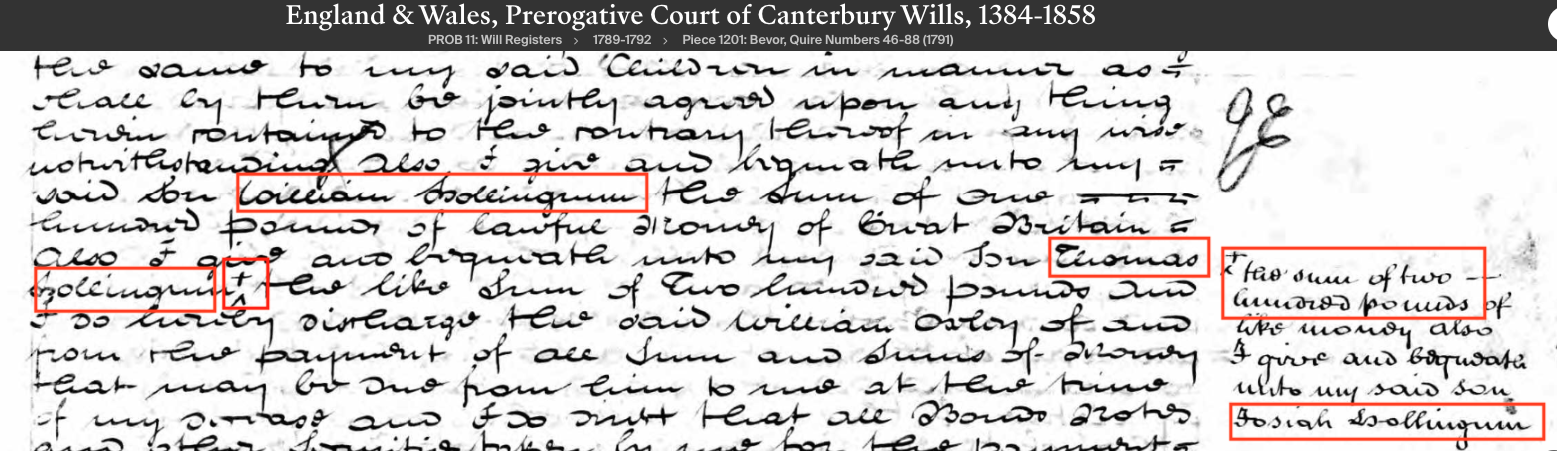 England & Wales, Prerogative Court of Canterbury Wills, 1384-1858
PROB 11: Will Registers > 1789-1792 > Piece 1201: Bevor, Quire Numbers 46-88 (1791)
the same to my said Children in manner as =
shall by them be jointly agreed upon any thing
herein contained to the contrary thereof in any wise
notwithstanding Also I give and bequeath unto my =
said Son William Hollingum the Sum of One
hundred pounds of lawful Money of Great Britain =
Also I give and bequeath unto my said Son Thomas
Hollingum + the like Sum of Two hundred pounds and
I do hereby discharge the said William of and
from the payment of all Sum and Sums of Money
that may be due from him to me at the time
of my decease and I do that all Bonds Notes
and other Securities taken by me for the payment =
JE
+ the sum of two
hundred pounds of
like money also
I give and bequeath
unto my said son
Josiah Hollingum